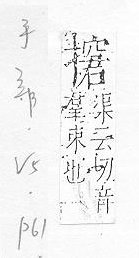 渠云切音
羣束也
手部·V5·p61